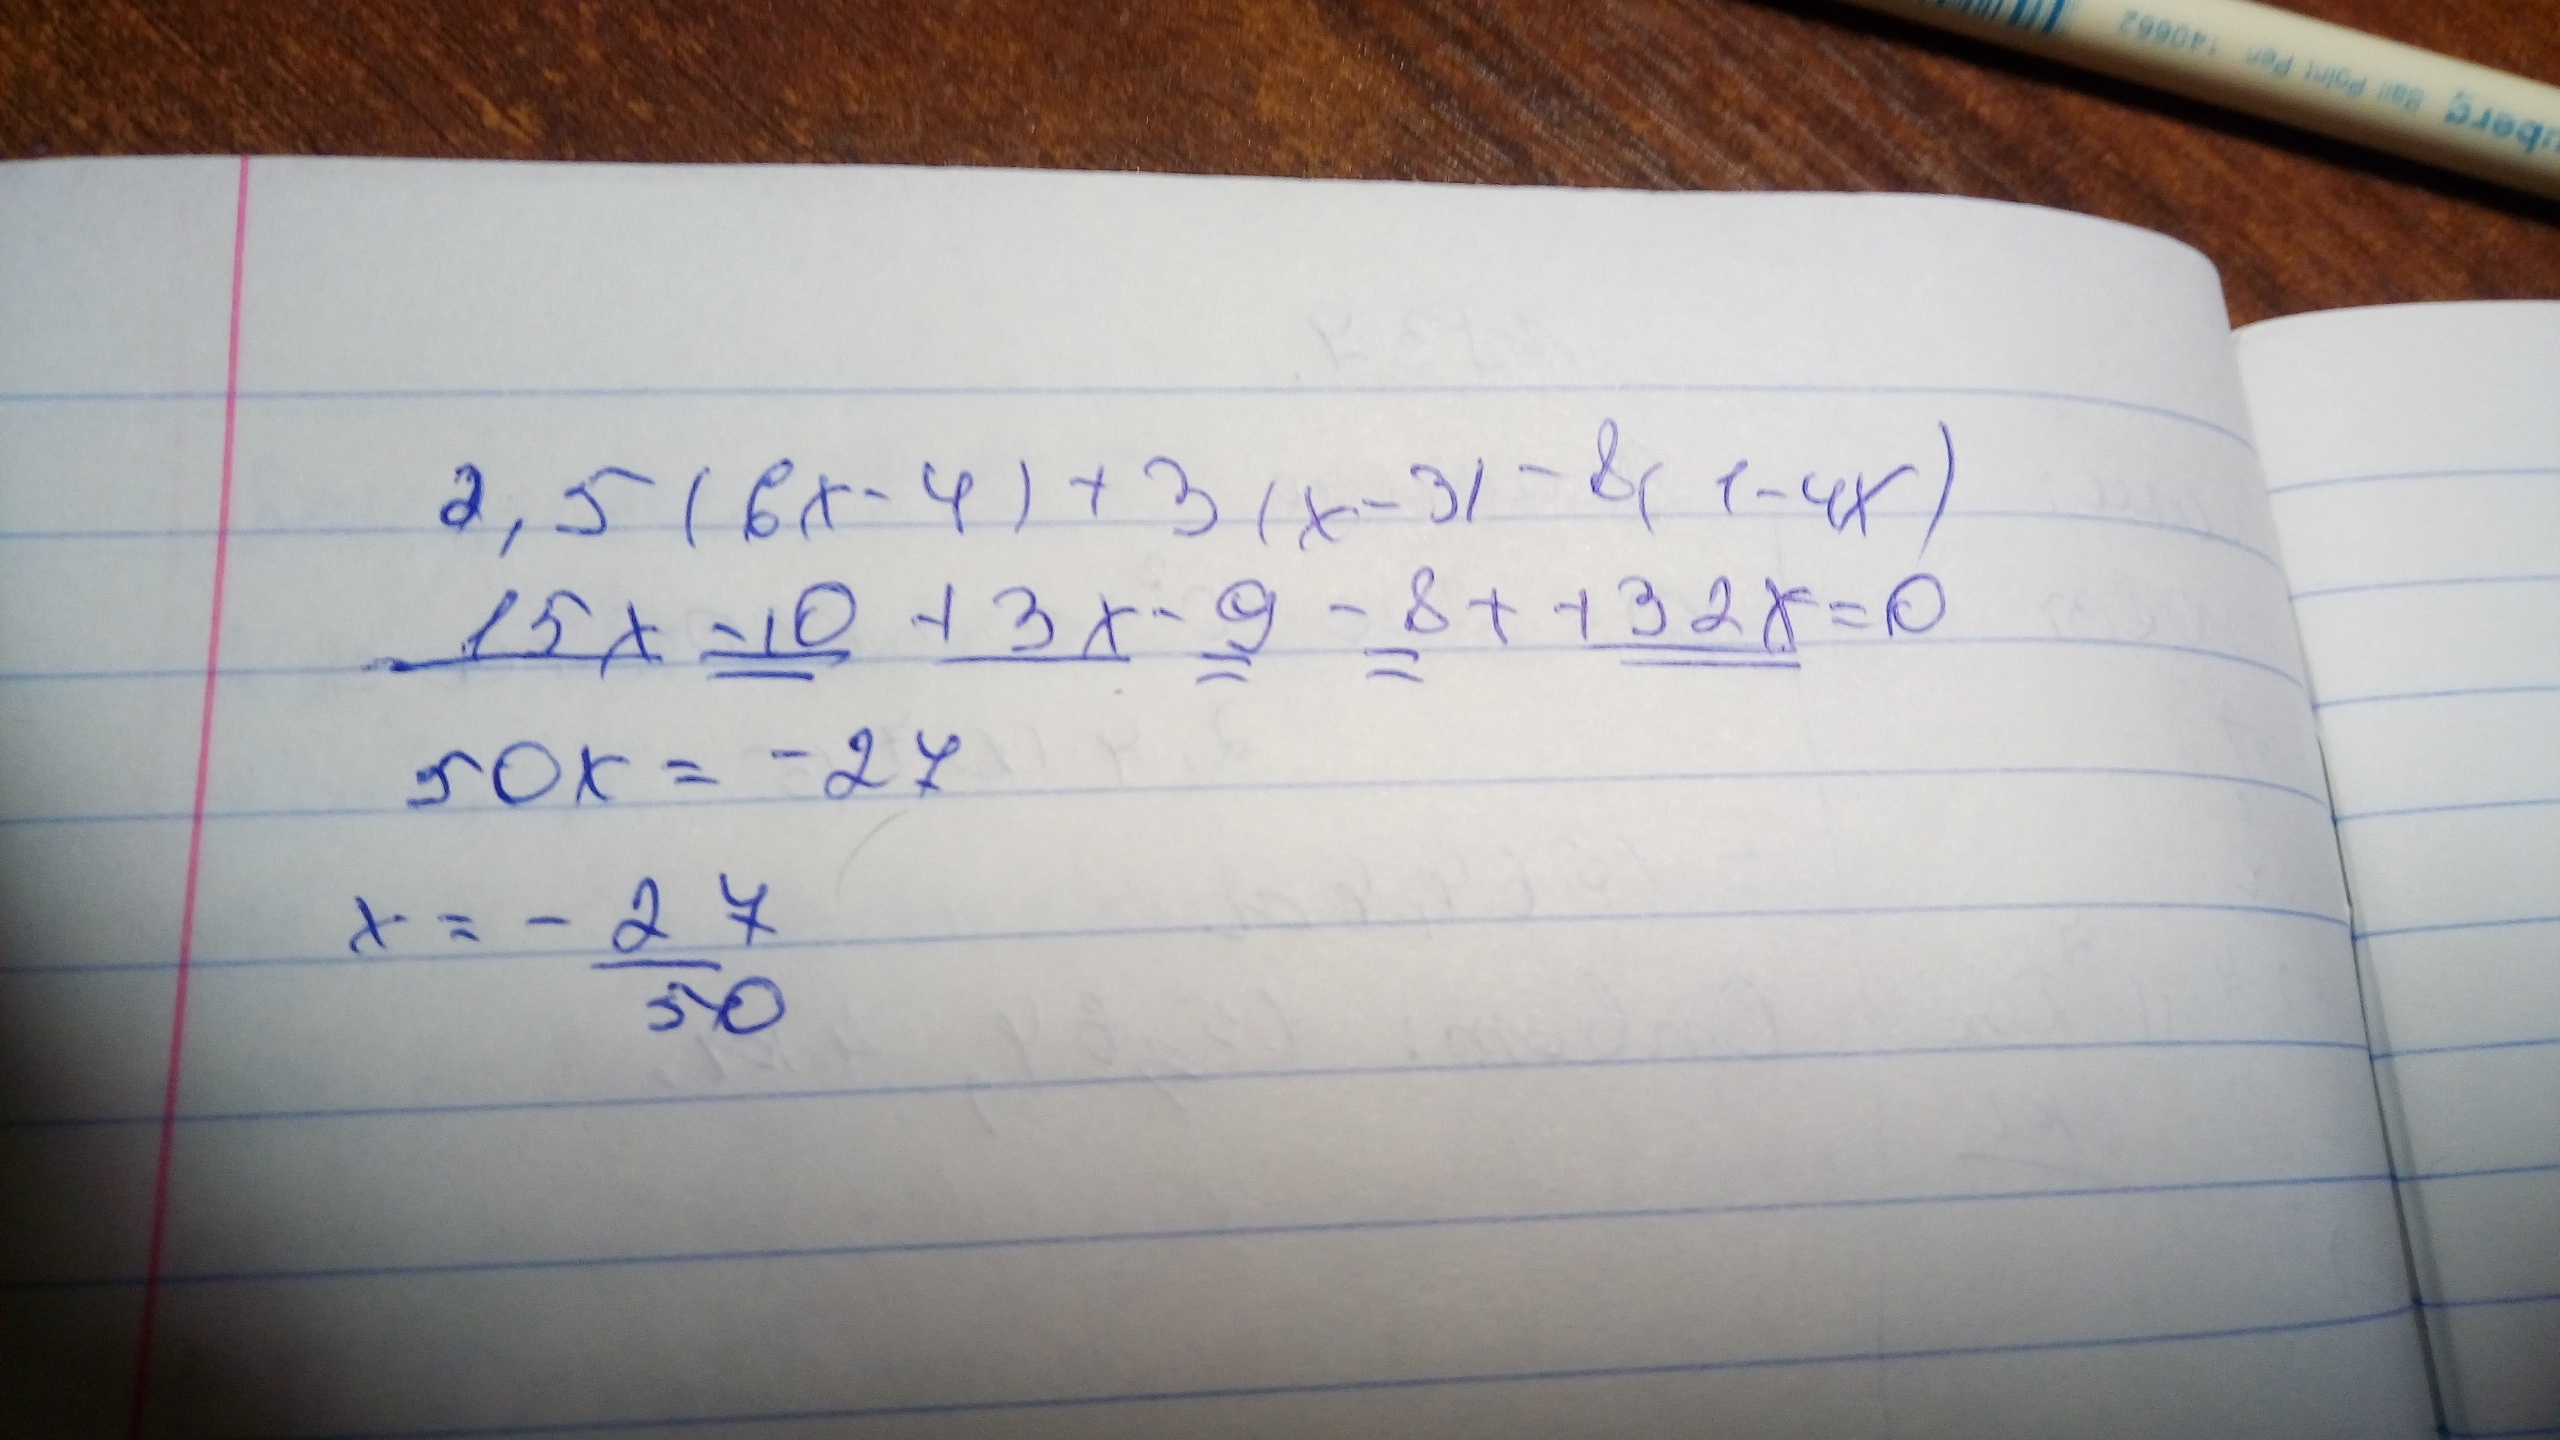 uberg Ball Point Pen 140662
2,5(6x-4)+3(x-3)-8(1-4x)
15x-10+3x-9-8++32x=0
50x=-27
x=-27
50